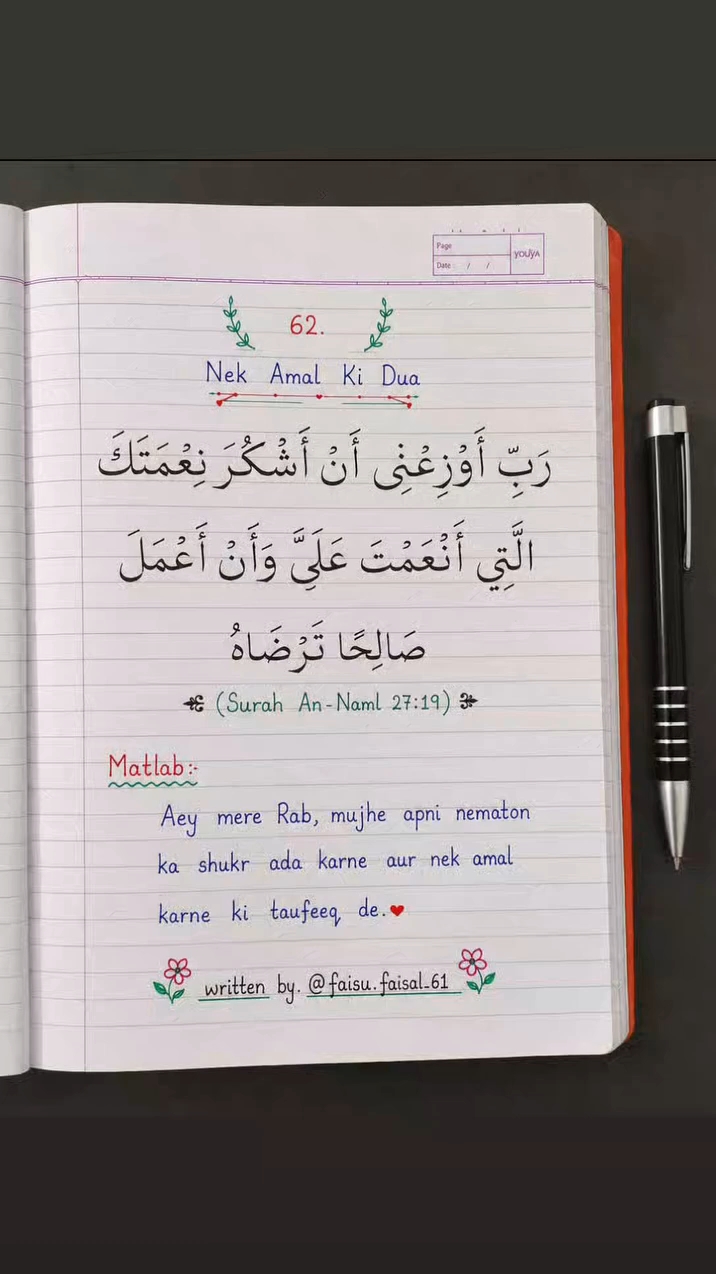 Page
Date / /
YOUVA
62.
Nek Amal Ki Dua
رَبِّ أَوْزِعْنِى أَنْ أَشْكُرَ نِعْمَتَكَ
الَّتِي أَنْعَمْتَ عَلَىَّ وَأَنْ أَعْمَلَ
صَالِحًا تَرْضَاهُ
(Surah An-Naml 27:19)
Matlab:-
Aey mere Rab, mujhe apni nematon
ka shukr ada karne aur nek amal
karne ki taufeeq de.
written by. @faisu.faisal_61